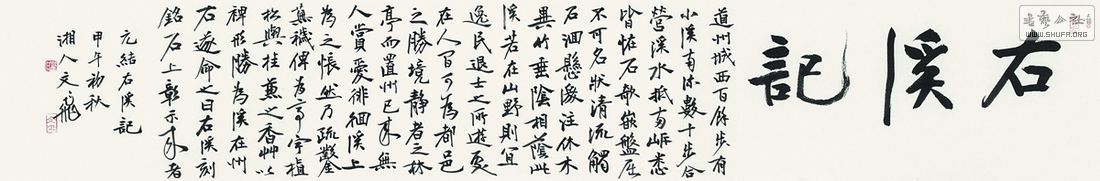 右溪記
道州城西百餘步有
小溪南流數十步合
營溪水抵兩岸悉
皆怪石欹嵌盤屈
不可名狀清流觸
石洄懸激注休木
異竹垂陰相蔭此
溪若在山野則宜
逸民退士之所遊處
在人間可為都邑
之勝境靜者之林
亭而置州已來無
人賞愛徘徊溪上
為之悵然乃疏鑿
蕪穢俾為亭宇植
松與桂兼之香艸以
裨形勝為溪在州
右遂命之曰右溪刻
銘石上彰示來者
元結右溪記
甲午初秋
湘人文飛
WWW.SHUFR.ORG